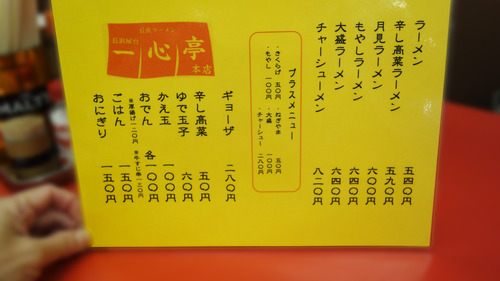 ラーメン 五四〇円
辛し高菜ラーメン 五九〇円
月見ラーメン 六〇〇円
もやしラーメン 六四〇円
大盛ラーメン 六四〇円
チャーシューメン 八二〇円
プラスメニュー
・きくらげ 五〇円
・もやし 一〇〇円
・ねぎやま 五〇円
・大盛 一〇〇円
・チャーシュー 二八〇円
長浜ラーメン
長浜屋台
一心亭
本店
ギョーザ 二八〇円
辛し高菜 五〇円
ゆで玉子 六〇円
かえ玉 一〇〇円
おでん 各一〇〇円
※厚揚げ一二〇円 ※牛すじ串一三〇円
ごはん 一五〇円
おにぎり 一五〇円